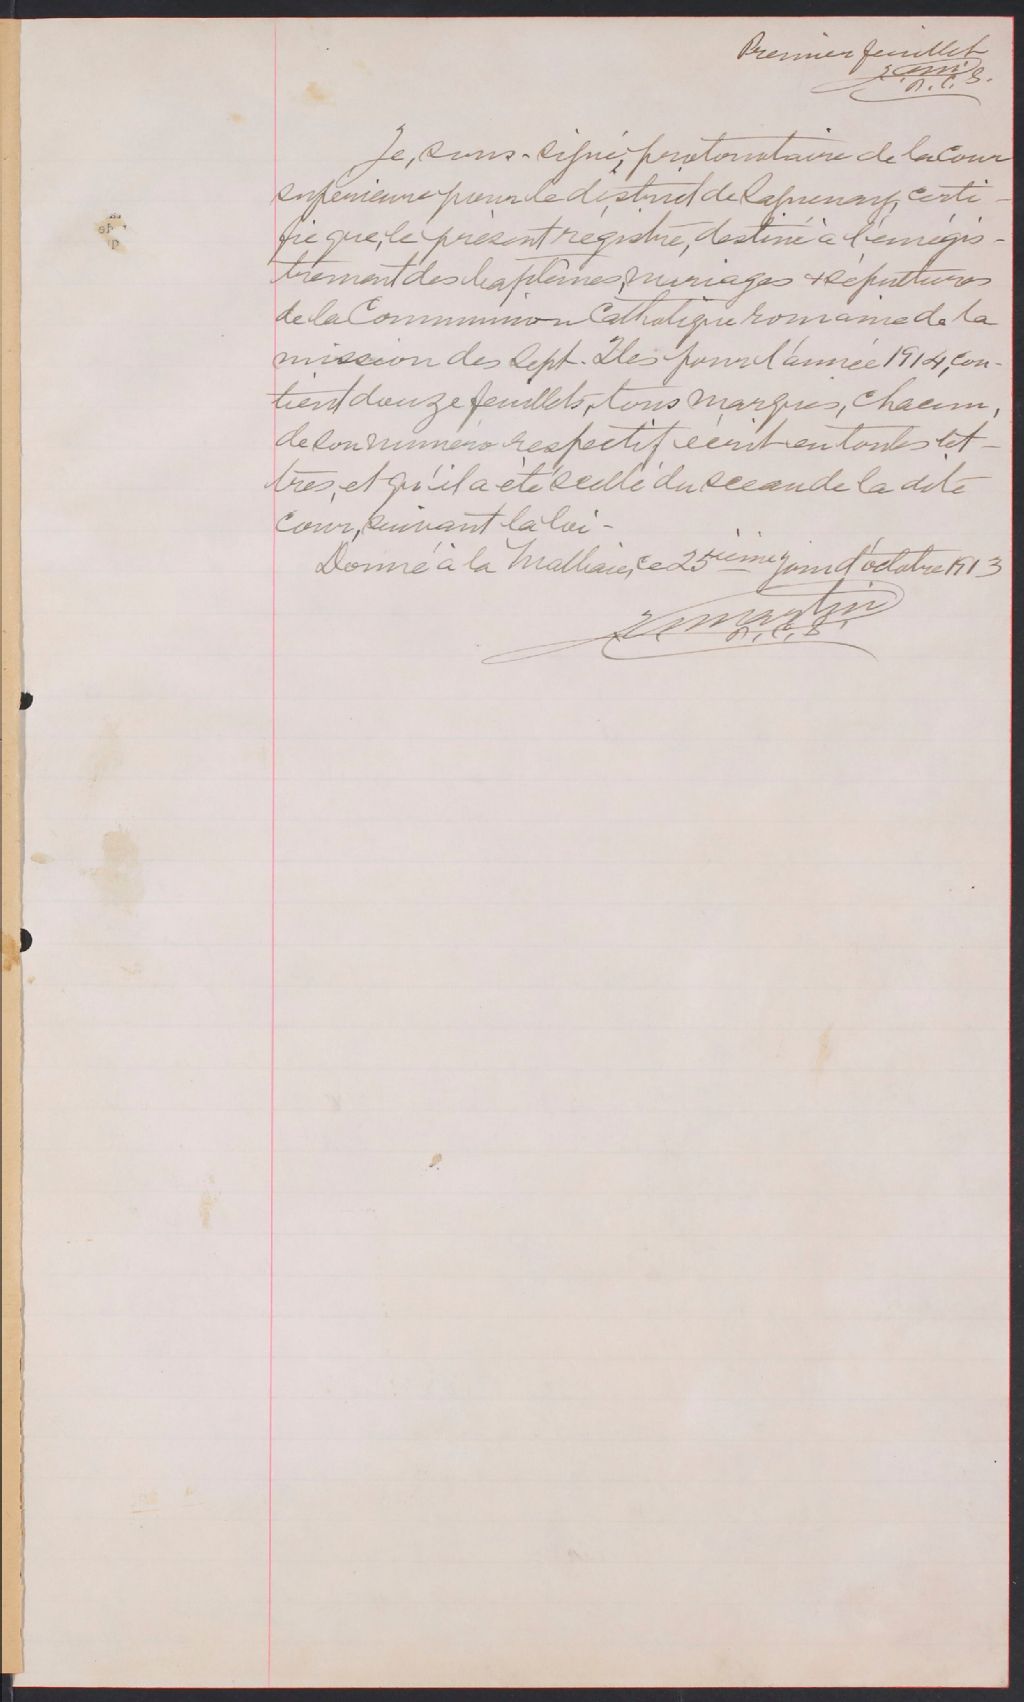 Premier feuillet
P. C. S.
Je, sous-signé, protonotaire de la Cour
supérieure pour le district de Saguenay, certi-
fie que, le présent régistre, destiné à l'enrégis-
trement des baptêmes, mariages & sépultures
de la Communion Catholique romaine de la
mission des Sept-Iles pour l'année 1914, con-
tient douze feuillets, tous marqués, chacun,
de son numéro respectif écrit en toutes let-
tres, et qu'il a été scellé du sceau de la dite
Cour, suivant la loi-
Donné à la Malbaie, ce 25ième jour d'octobre 1913
Martin
P. C. S.